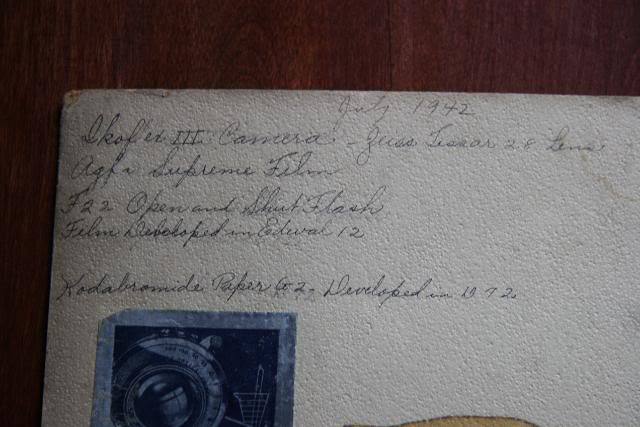 July 1942
Ikoflex III Camera - Zeiss Tessar 2.8 Lens
Agfa Supreme Film
F22 Open and Shut Flash
Film Developed in Edwal 12
Kodabromide Paper G-2 - Developed in D72